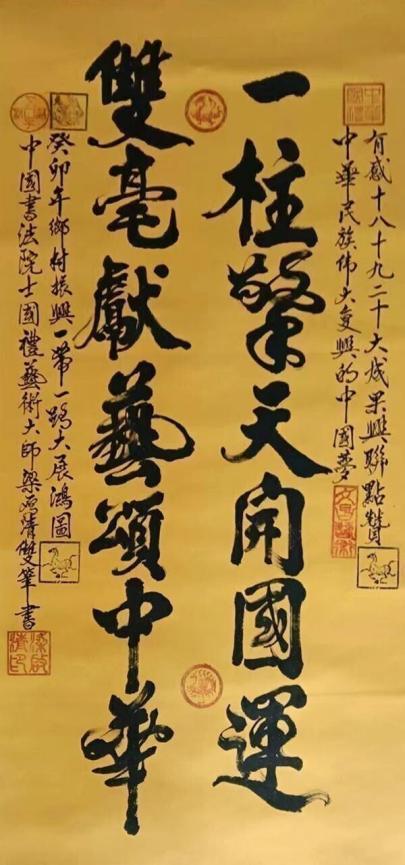 有感十八十九二十大成果興聯點贊
中華民族伟大复興的中國夢
一柱擎天開國運
雙毫獻藝頌中華
癸卯年鄉村振興一帶一路大展鴻圖
中國書法院士國禮藝術大師梁清雙筆書